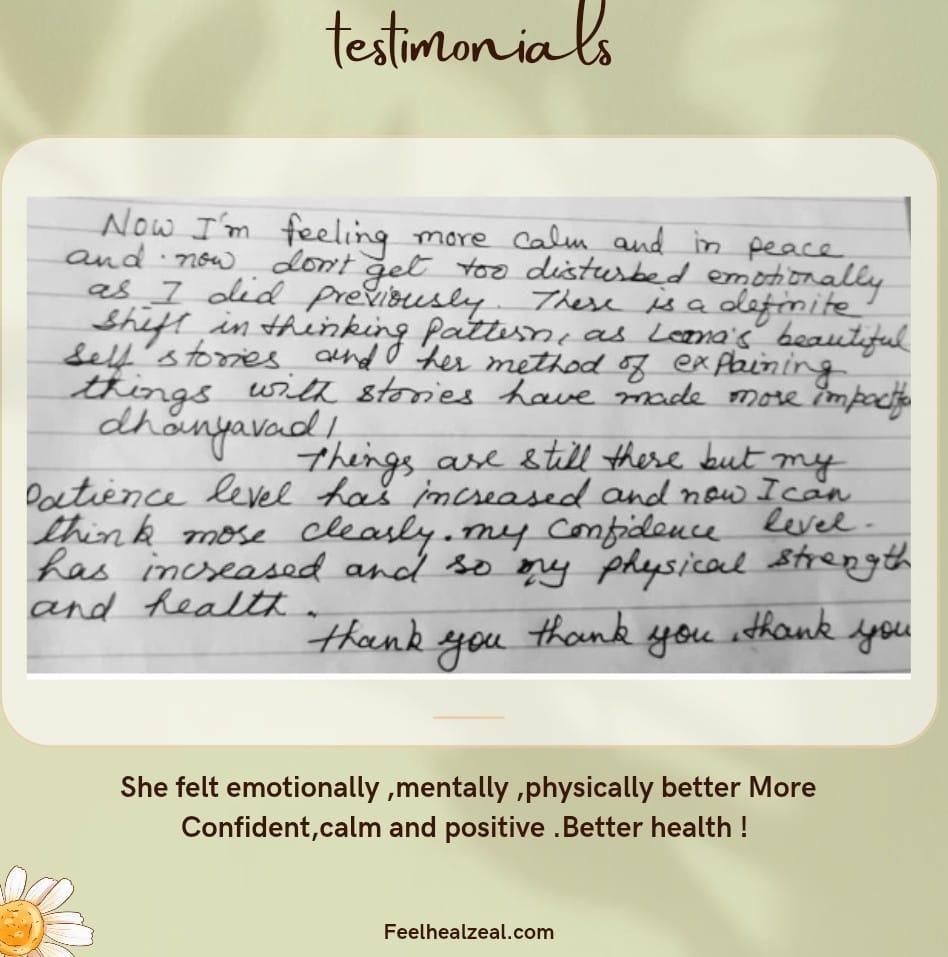 testimonials
Now I'm feeling more calm and in peace
and now don't get too disturbed emotionally
as I did previously. There is a definite
shift in thinking pattern, as Leena's beautiful
self stories and her method of explaining
things with stories have made more
dhanyavad!
Things are still there but my
patience level has increased and now I can
think more clearly. my confidence level
has increased and so my physical strength
and health.
thank you thank you, thank you
She felt emotionally ,mentally ,physically better More
Confident,calm and positive .Better health !
Feelhealzeal.com